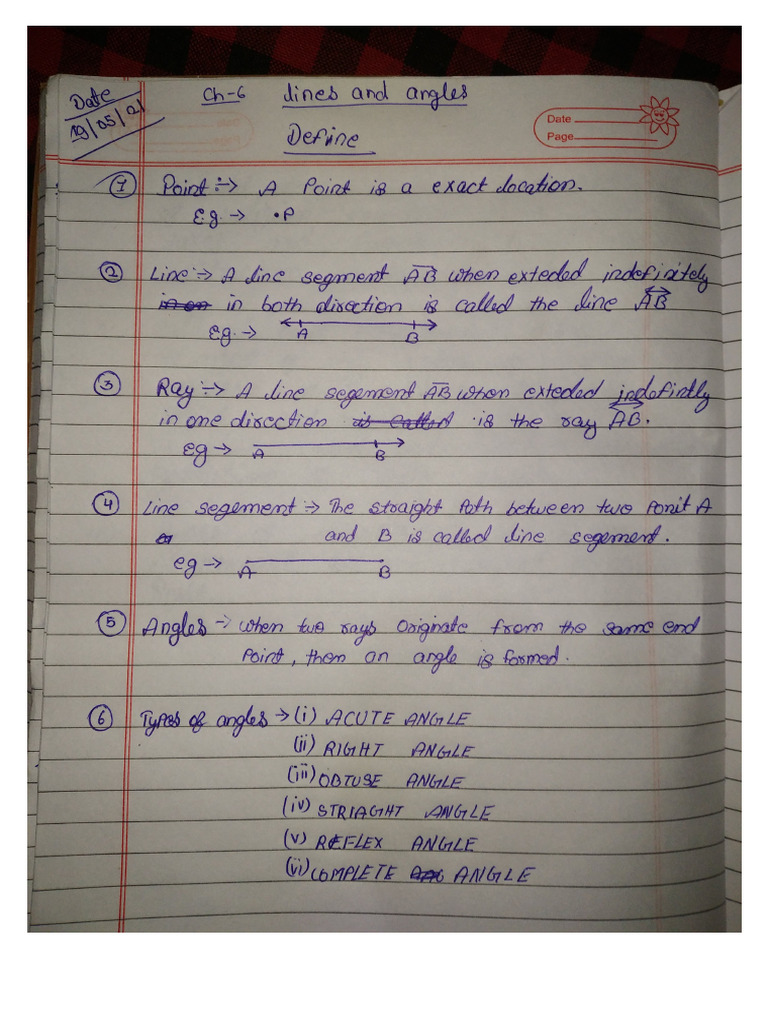 Date
19/05/21
Ch-6 lines and angles
Define
Date
Page
① Point :→ A Point is a exact location.
E.g. → •P
② Line :→ A line segment AB when exteded indefinitely
in both direction is called the line AB
Eg. → A B
③ Ray :→ A line segement AB when exteded indefintly
in one direction is called is the ray AB.
Eg → A B
④ Line segement :→ The straight Path between two Ponit A
and B is called line segement.
eg → A B
⑤ Angles → when two rays originate from the same end
Point, then an angle is formed.
⑥ Types of angles → (i) ACUTE ANGLE
(ii) RIGHT ANGLE
(iii) OBTUSE ANGLE
(iv) STRIAGHT ANGLE
(v) REFLEX ANGLE
(vi) COMPLETE ANGLE